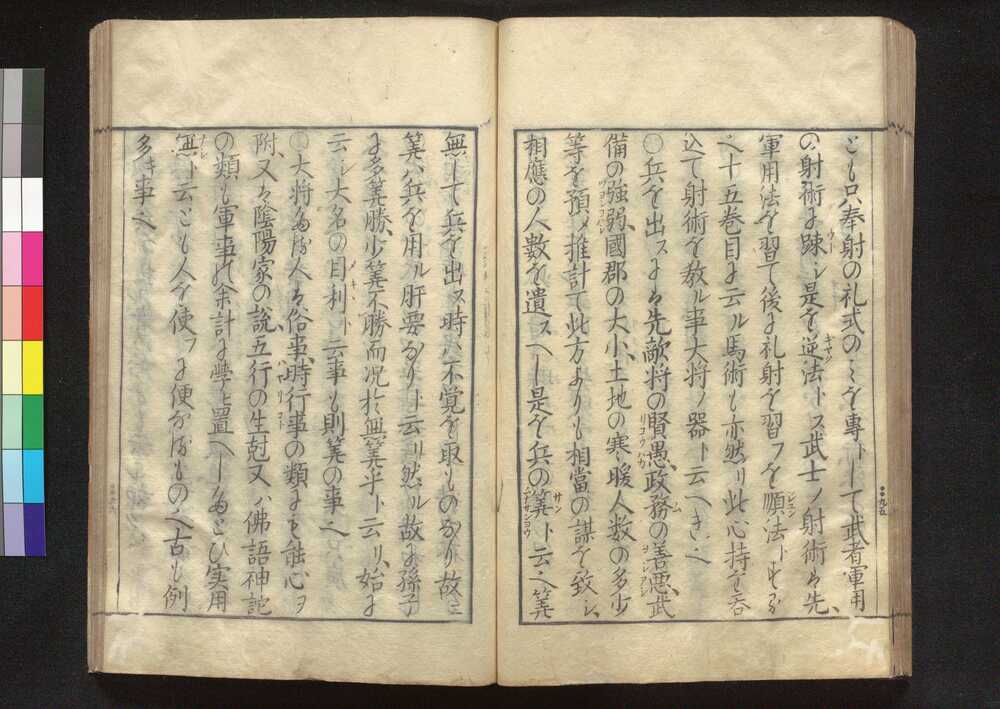 とも只奉射の礼式のミを専トして武者軍用
の射術に踈シ是を逆法トス武士ノ射術ハ先
軍用法を習て後に礼射を習フを順法トするヿ
也十五巻目に云ル馬術も亦然リ此心持を呑
込て射術を教ル事大将ノ器ト云ヘき也
〇兵を出スにハ先敵将の賢愚、政務の善悪、武
備の強弱、國郡の大小、土地の寒暖人数の多少
等を預メ推計て此方よりも相當の謀を致シ、
相應の人数を遣スヘし是を兵の筭ト云也筭
無して兵を出ス時ハ不覚を取ものなり故ニ
筭ハ兵を用ル肝要なりト云リ然ル故に孫子
に多筭勝、少筭不勝而况於無筭乎ト云リ始に
云シ大名の目利ト云事も則筭の事也
〇大将たる人ハ俗事、時行事の類にも能心ヲ
附、又ハ陰陽家の説五行の生尅又ハ佛語神詫
の類も軍事の余計に學ヒ置ヘしたとひ実用
無ト云とも人を使フに便なるもの也古も例
多キ事也